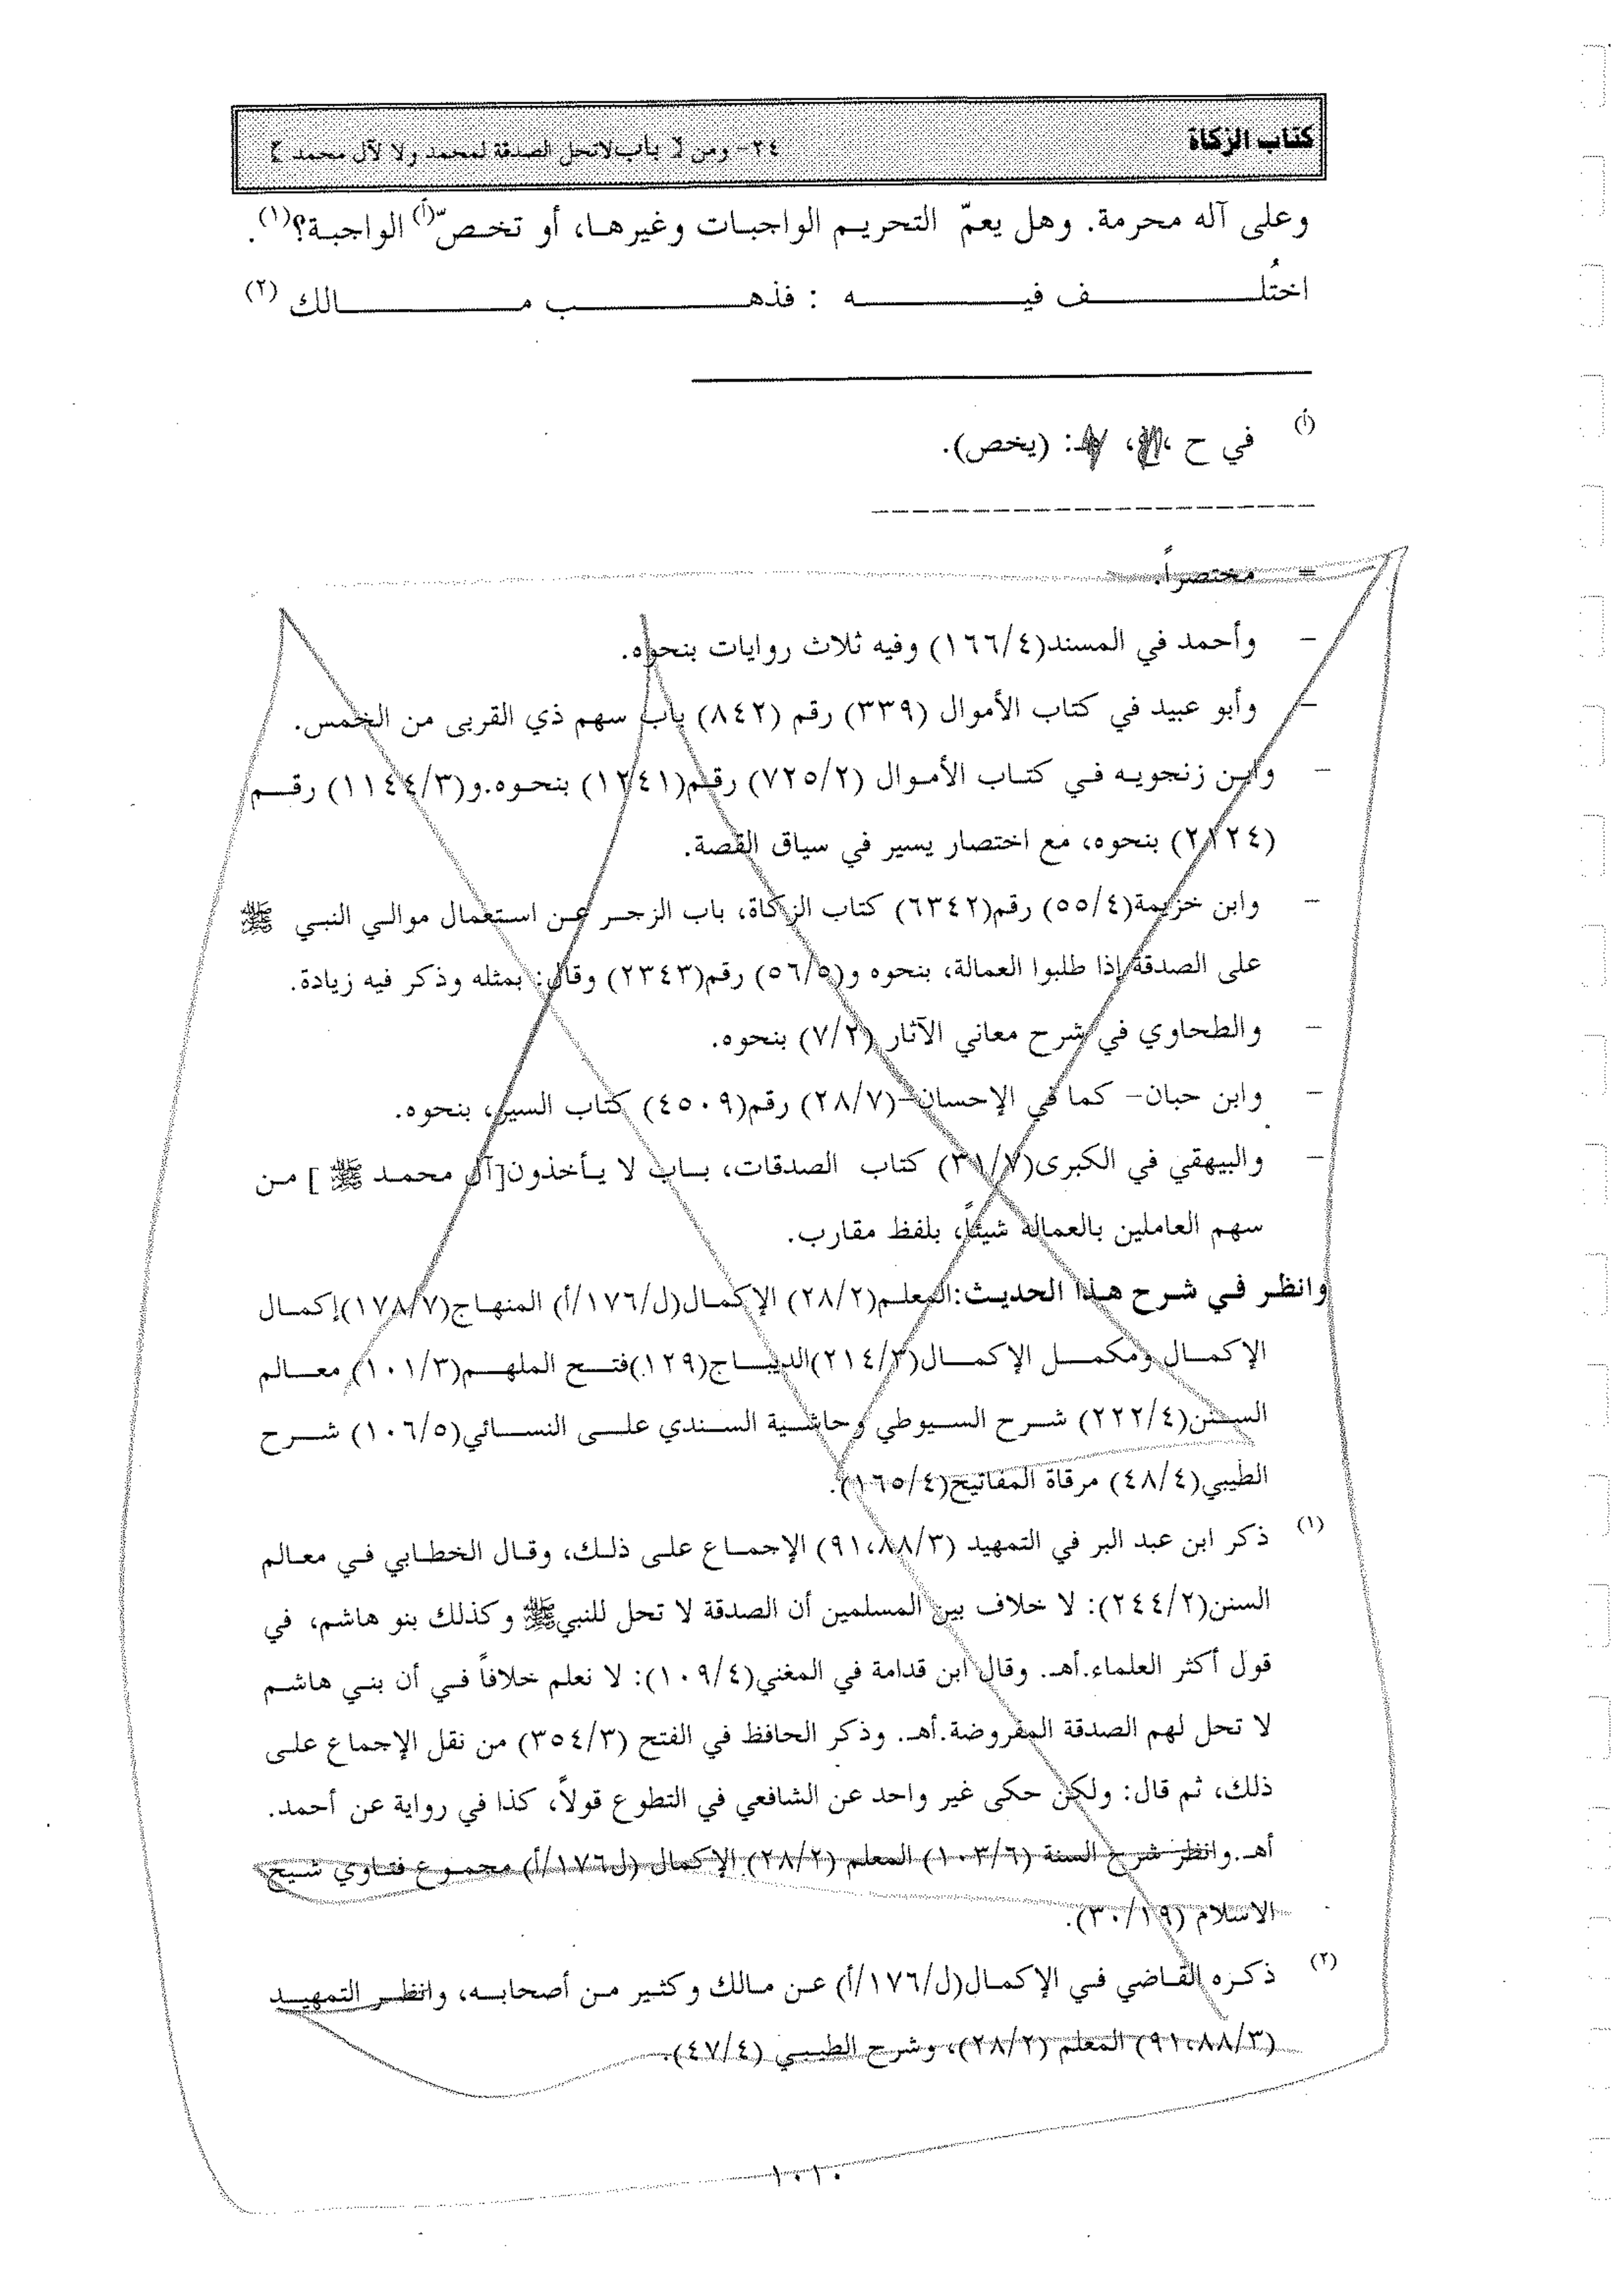 كتاب الزكاة
٢٤- ومن [ باب لا تحل الصدقة لمحمد ولا لآل محمد ]
وعلى آله محرمة. وهل يعمّ التحريم الواجبات وغيرها، أو تخصّ(أ) الواجبة؟(١).
اختُلف فيه : فذهب مالك (٢)
(أ) في ح ، ، : (يخص).
= مختصراً.
- وأحمد في المسند(١٦٦/٤) وفيه ثلاث روايات بنحوه.
- وأبو عبيد في كتاب الأموال (٣٣٩) رقم (٨٤٢) باب سهم ذي القربى من الخمس.
- وابن زنجويه في كتاب الأموال (٧٢٥/٢) رقم(١٢٤١) بنحوه.و(١١٤٤/٣) رقم
(٢١٢٤) بنحوه، مع اختصار يسير في سياق القصة.
- وابن خزيمة(٥٥/٤) رقم(٦٣٤٢) كتاب الزكاة، باب الزجر عن استعمال موالي النبي ﷺ
على الصدقة إذا طلبوا العمالة، بنحوه و(٥٦/٥) رقم(٢٣٤٣) وقال: بمثله وذكر فيه زيادة.
- والطحاوي في شرح معاني الآثار (٧/٢) بنحوه.
- وابن حبان- كما في الإحسان-(٢٨/٧) رقم(٤٥٠٩) كتاب السير، بنحوه.
- والبيهقي في الكبرى(٣١/٧) كتاب الصدقات، باب لا يأخذون[آل محمد ﷺ ] من
سهم العاملين بالعمالة شيئاً، بلفظ مقارب.
وانظر في شرح هذا الحديث:المعلم(٢٨/٢) الإكمال(ل/١٧٦/أ) المنهاج(١٧٨/٧)إكمال
الإكمال ومكمل الإكمال(٢١٤/٣)الديباج(١٢٩)فتح الملهم(١٠١/٣) معالم
السنن(٢٢٢/٤) شرح السيوطي وحاشية السندي على النسائي(١٠٦/٥) شرح
الطيبي(٤٨/٤) مرقاة المفاتيح(١٦٥/٤).
(١) ذكر ابن عبد البر في التمهيد (٩١،٨٨/٣) الإجماع على ذلك، وقال الخطابي في معالم
السنن(٢٤٤/٢): لا خلاف بين المسلمين أن الصدقة لا تحل للنبيﷺ وكذلك بنو هاشم، في
قول أكثر العلماء.أهـ. وقال ابن قدامة في المغني(١٠٩/٤): لا نعلم خلافاً في أن بني هاشم
لا تحل لهم الصدقة المفروضة.أهـ. وذكر الحافظ في الفتح (٣٥٤/٣) من نقل الإجماع على
ذلك، ثم قال: ولكن حكى غير واحد عن الشافعي في التطوع قولاً، كذا في رواية عن أحمد.
أهـ.وانظر شرح السنة (١٠٣/٦) المعلم (٢٨/٢) الإكمال (ل١٧٦/أ) مجموع فتاوي شيخ
الاسلام (٣٠/١٩).
(٢) ذكره القاضي في الإكمال(ل/١٧٦/أ) عن مالك وكثير من أصحابه، وانظر التمهيد
(٩١،٨٨/٣) المعلم (٢٨/٢)، وشرح الطيبي (٤٧/٤).
١٠١٠